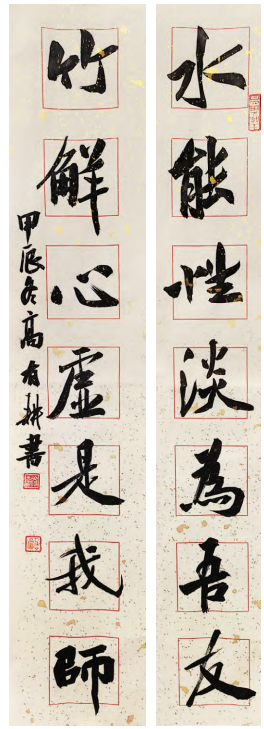 水能性淡為吾友
竹解心虛是我師
甲辰冬高有耕書